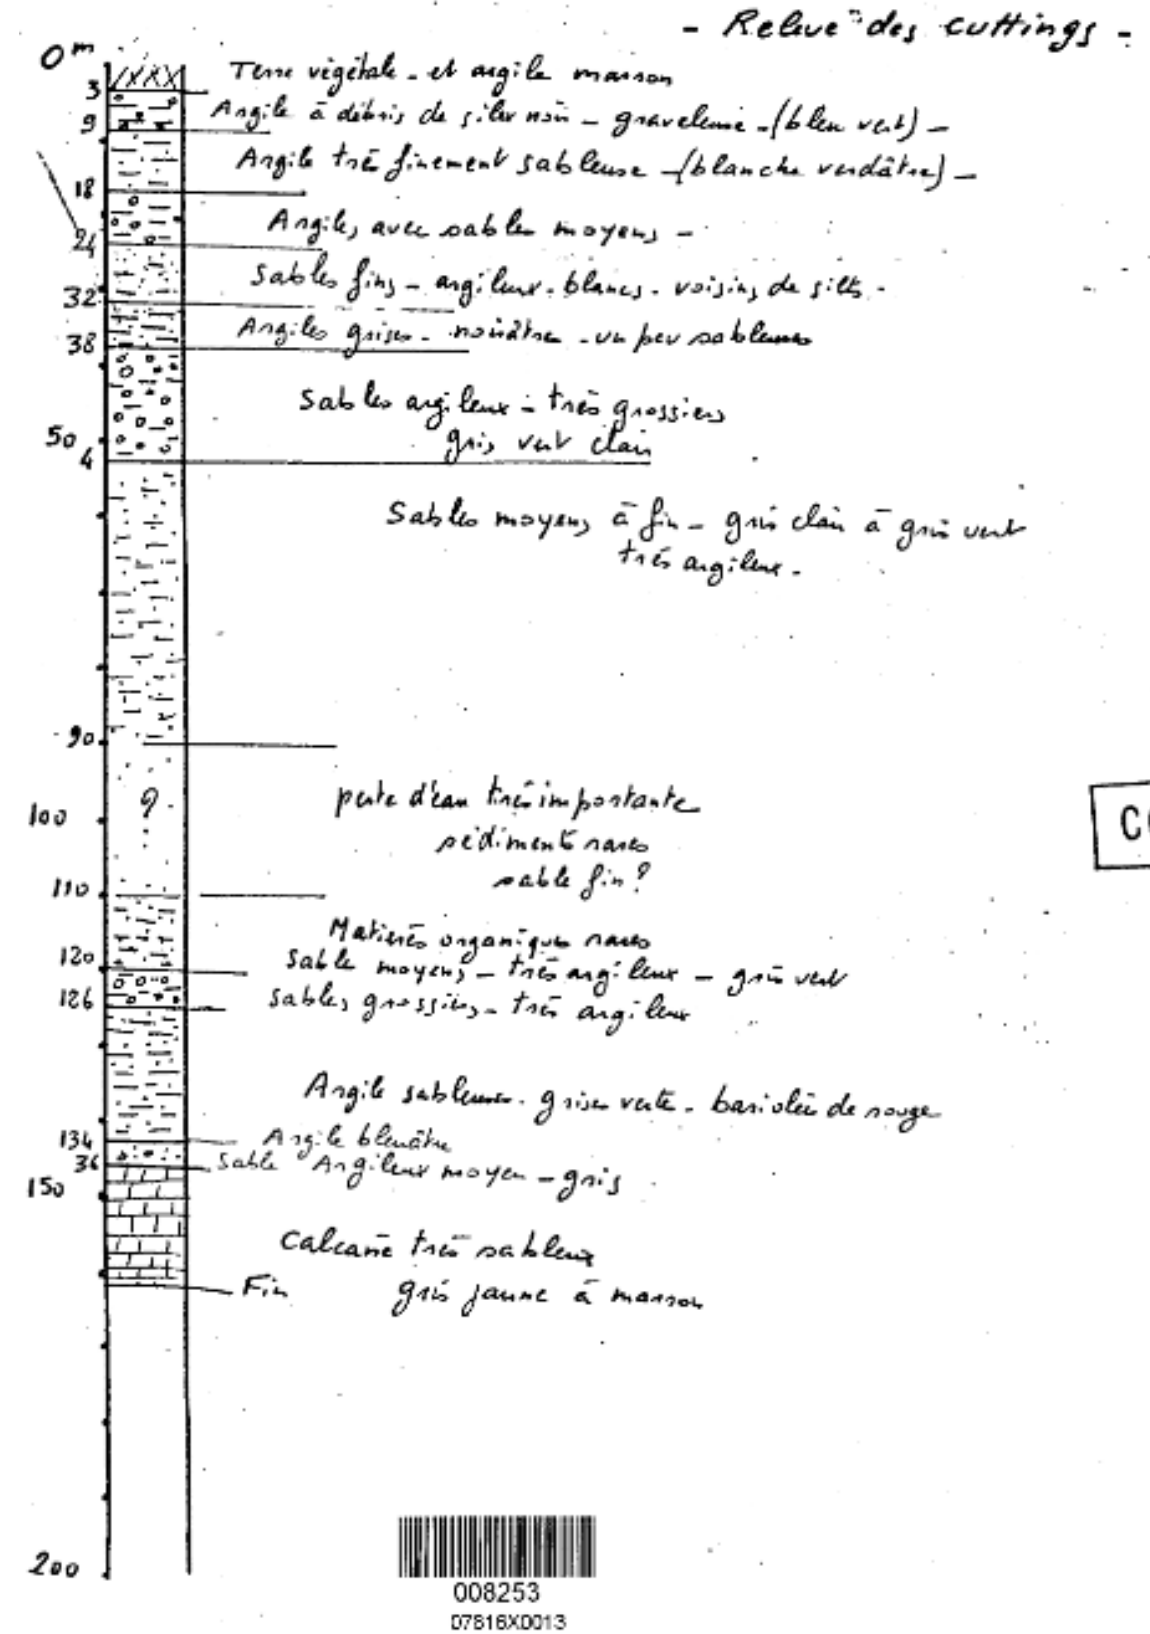 - Relevé des cuttings -
0m
Terre végétale - et argile marron
3
Argile à débris de silex noir - graveleuse - (bleu vert) -
9
Argile très finement sableuse - (blanche verdâtre) -
18
Argiles avec sables moyens -
24
Sables fins - argileux - blancs - voisins de silts -
32
Argiles grises - noirâtres - un peu sableuses
38
Sables argileux - très grossiers
50
gris vert clair
4
Sables moyens à fin - gris clair à gris vert
très argileux -
90
perte d'eau très importante
100
?
sédiments rares
sable fin?
110
Matières organiques rares
120
Sable moyens - très argileux - gris vert
126
Sables grossiers - très argileux
Argile sableuse - grise verte - bariolée de rouge
134
Argile bleuâtre
36
Sable Argileux moyen - gris
150
Calcaire très sableux
Fin
gris jaune à marron
200
008253
07816X0013